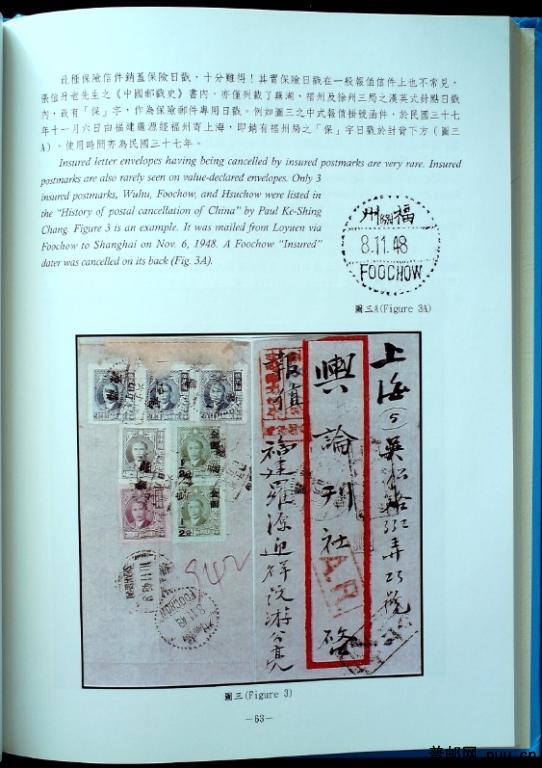 此種保險信件銷蓋保險日戳,十分難得!其實保險日戳在一般報值信件上也不常見,
張愷升老先生之《中國郵戳史》書內,亦僅列載了蕪湖、福州及徐州三局之漢英式鋅點日戳
內,嵌有「保」字,作為保險郵件專用日戳。例如圖三之中式報值掛號函件,於民國三十七
年十一月六日由福建羅源經福州寄上海,即銷有福州局之「保」字日戳於封背下方(圖三
A),使用時間亦為民國三十七年。
Insured letter envelopes having being cancelled by insured postmarks are very rare. Insured
postmarks are also rarely seen on value-declared envelopes. Only 3
insured postmarks, Wuhu, Foochow, and Hsuchow were listed in
the "History of postal cancellation of China" by Paul Ke-Shing
Chang. Figure 3 is an example. It was mailed from Loyuen via
Foochow to Shanghai on Nov. 6, 1948. A Foochow "Insured"
dater was cancelled on its back (Fig. 3A).
州 福
8.11.48
FOOCHOW
圖三A(Figure 3A)
上海
輿論刊社啓
報值
福建羅源迎祥
A.R.
542
FOOCHOW
圖三(Figure 3)
—63—
普邮网 puu.cn